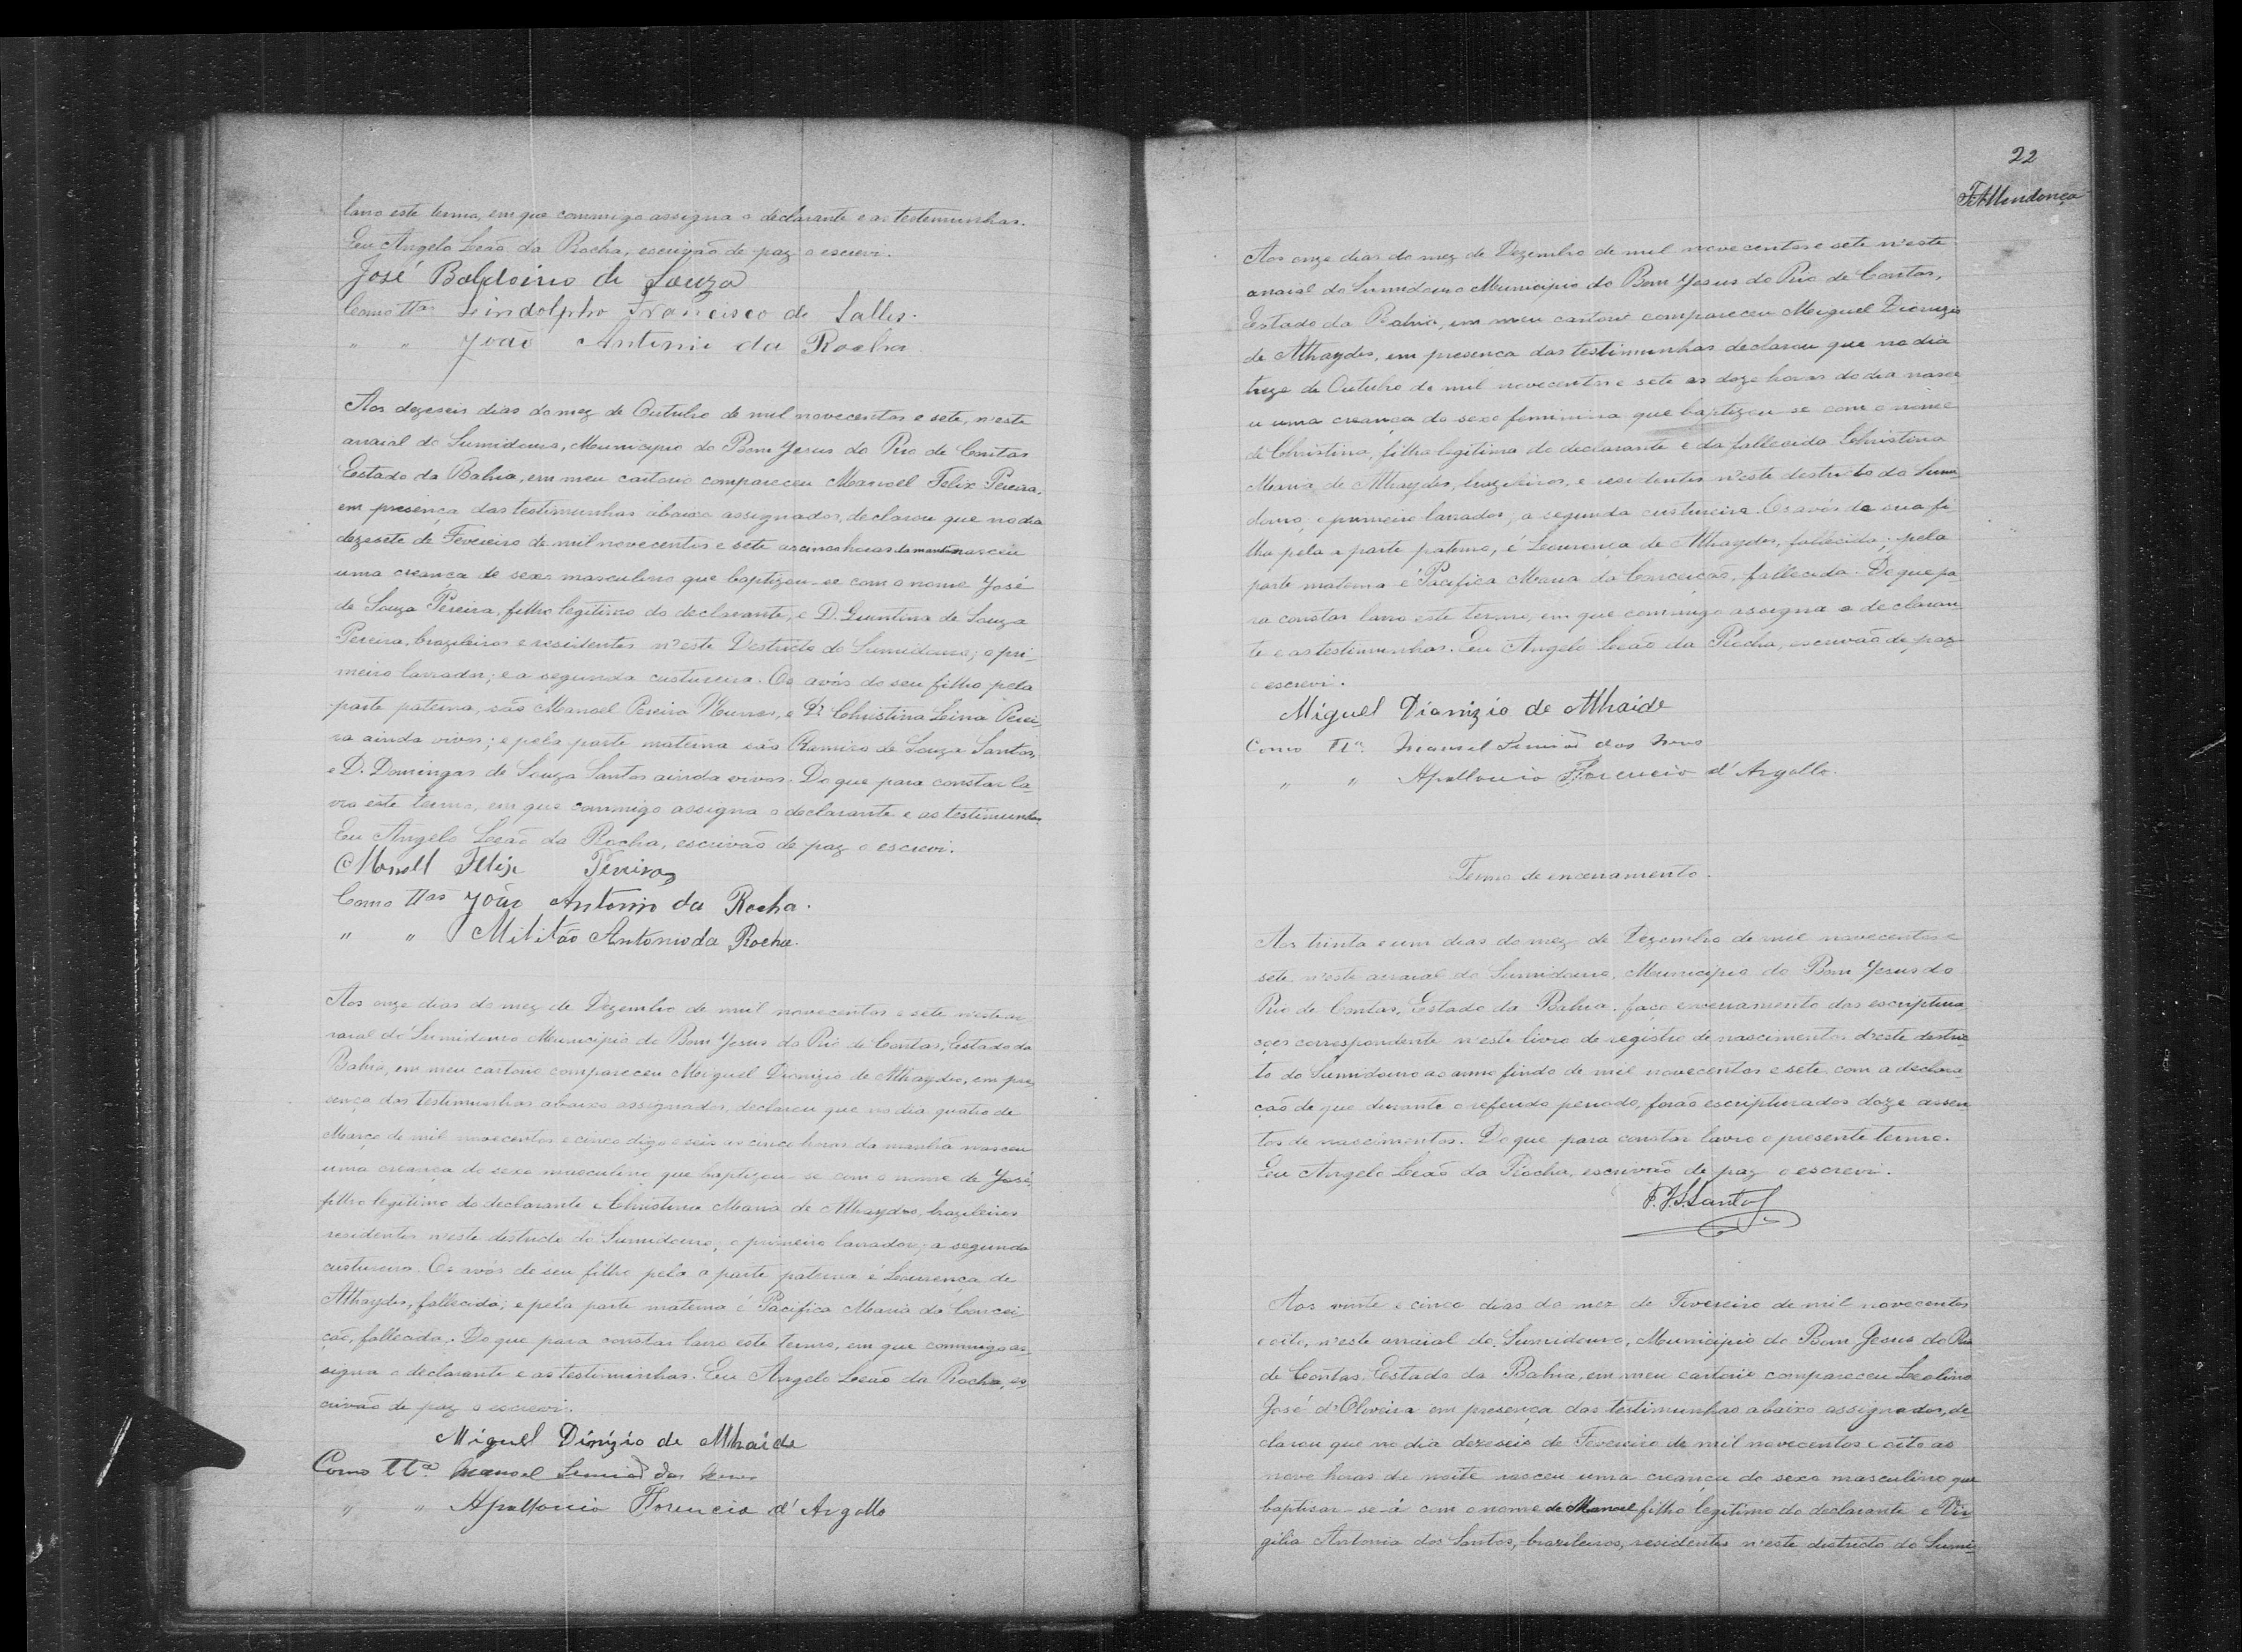 lavro este termo, em que commigo assigna o declarante e as testemunhas.
Eu Angelo Leão da Rocha, escrivão de paz o escrevi.
José Baldoino de Souza
Como ttas Lindolpho Francisco de Salles.
" " João Antonio da Rocha
Aos dezeseis dias do mez de Outubro de mil novecentos e sete, n'este
arraial do Sumidouro, Municipio do Bom Jesus do Rio de Contas
Estado da Bahia, em meu cartorio compareceu Manoel Felix Pereira,
em presença das testimunhas abaixo assignados, declarou que no dia
dezesete de Fevereiro de mil novecentos e sete as cinco horas da manhã nasceu
uma creança de sexo masculino que baptizou-se com o nome José
de Souza Pereira, filho legitimo do declarante, e D. Quintina de Souza
Pereira, brazileiros e residentes n'este Destricto do Sumidouro; o pri-
meiro lavrador; e a segunda custureira. Os avós do seu filho pela
parte paterna, são Manoel Pereira Nunes, e D. Christina Leina Perei-
ra ainda vivos; e pela parte materna são Ramiro de Souza Santos,
e D. Domingas de Souza Santos ainda vivos. Do que para constar la-
vro este termo, em que commigo assigna o declarante e as testimunhas.
Eu Angelo Leão da Rocha, escrivão de paz o escrevi.
Manoell Felix Pereira
Como ttas João Antonio da Rocha.
" " Militão Antonio da Rocha.
Aos onze dias do mez de Dezembro de mil novecentos e sete n'este ar
raial do Sumidouro Municipio do Bom Jesus do Rio de Contas, Estado da
Bahia, em meu cartorio compareceu Miguel Dionizio de Athaydes, em pre
sença das testemunhas abaixo assignados, declarou que no dia quatro de
Março de mil novecentos e cinco digo e seis as cinco horas da manhã nasceu
uma creança do sexo masculino que baptizou-se com o nome de José,
filho legitimo do declarante e Christina Maria de Athaydes, brazileiros
residentes n'este destricto do Sumidouro, o primeiro lavrador, a segunda
custureira. Os avós do seu filho pela a parte paterna é Lourença de
Athaydes, fallecida; e pela parte materna é Pacifica Maria da Concei-
ção, fallecida. Do que para constar lavro este termo, em que commigo as-
signa o declarante e as testiminhas. Eu Angelo Leão da Rocha, es
crivão de paz o escrevi.
Miguel Dionizio de Athaide
Como tta. Manoel Simião das Neves
" " Apollonio Florencio d'Argollo
22
F. A. Mendonça
Aos onze dias do mez de Dezembro de mil novecentos e sete n'este
arraial do Sumidouro Municipio do Bom Jesus do Rio de Contas,
Estado da Bahia, em meu cartorio compareceu Miguel Dionizio
de Athaydes, em presença das testimunhas declarou que no dia
treze de Outubro de mil novecentos e sete as doze horas do dia nasce
u uma creança do sexo feminina que baptizou-se com o nome
de Christina, filha legitima do declarante e da fallecida Christina
Maria de Athaydes, brazileiros, e residentes n'este destricto do Sumi
douro, o primeiro lavrador; a segunda custureira. Os avós da sua fi-
lha pela a parte paterno, é Lourença de Athaydes, fallecida; pela
parte materna é Pacifica Maria da Conceição, fallecida. Do que pa
ra constar lavro este termo, em que commigo assigna o declaran
te e as testimunhas. Eu Angelo Leão da Rocha, escrivão de paz
o escrevi.
Miguel Dionizio de Athaide
Como tta. Manoel Simião das Neves
" " Apollonio Florencio d'Argollo.
Termo de encerramento.
Aos trinta e um dias do mez de Dezembro de mil novecentos e
sete, n'este arraial do Sumidouro, Municipio do Bom Jesus do
Rio de Contas, Estado da Bahia, faço encerramento das escriptura
ções correspondente n'este livro de registro de nascimentos d'este destric-
to do Sumidouro ao anno findo de mil novecentos e sete com a declara-
ção de que durante o referido periodo, forão escripturados doze assen
tos de nascimentos. Do que para constar lavro o presente termo.
Eu Angelo Leão da Rocha, escrivão de paz o escrevi.
F. J. S. Santos
Aos vinte e cinco dias do mez de Fevereiro de mil novecentos
e oito, n'este arraial do Sumidouro, Municipio do Bom Jesus do Rio
de Contas, Estado da Bahia, em meu cartorio compareceu Leolino
José d'Oliveira em presença das testimunhas abaixo assignados, de
clarou que no dia dezeseis de Fevereiro de mil novecentos e oito as
nove horas da noite nasceu uma creança do sexo masculino que
baptisar-se-á com o nome de Manoel filho legitimo do declarante e Vir
gilia Antonia dos Santos, brazileiros, residentes n'este districto do Sumi-